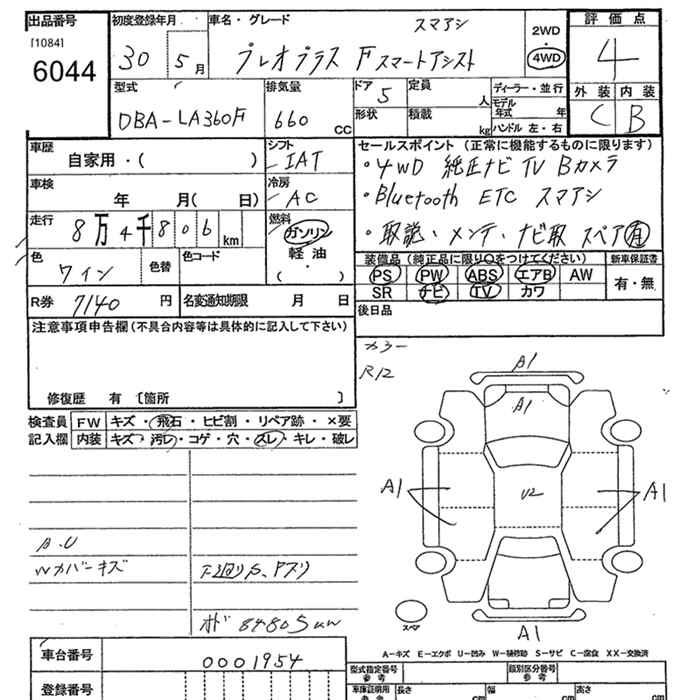 出品番号
[1084]
6044
初度登録年月
30 5月
車名・グレード
スマアシ
プレオプラス F スマートアシスト
2WD・4WD
評価点
4
外装 内装
C B
型式
DBA-LA360F
排気量
660 CC
ドア
5
形状
定員
人
積載
kg
ディーラー・並行
モデル年式 年
ハンドル 左・右
車歴
自家用・( )
シフト
IAT
車検
年 月( 日)
冷房
AC
走行
8万4千806 km
燃料
ガソリン
軽油
( )
色
ワイン
色替
色コード
R券 7140 円
名変通知期限 月 日
セールスポイント(正常に機能するものに限ります)
・4WD 純正ナビ TV Bカメラ
・Bluetooth ETC スマアシ
・取説・メンテ・ナビ取 スペア有
装備品(純正品に限り○をつけてください)
PS PW ABS エアB AW
SR ナビ TV カワ
新車保証書
有・無
後日品
注意事項申告欄(不具合内容等は具体的に記入して下さい)
修復歴 有〔箇所 〕
検査員記入欄
FW キズ・飛石・ヒビ割・リペア跡・×要
内装 キズ・汚レ・コゲ・穴・スレ・キレ・破レ
カラー
R12
A1
A1
A1
U2
A1
A1
スペア
A・U
Wカバーキズ
下廻りS、アズリ
84805
A-キズ E-エクボ U-凹み W-補修跡 S-サビ C-腐食 XX-交換済
車台番号
0001954
登録番号
型式指定番号
参考
類別区分番号
参考
車庫証明用
参考
長さ cm
幅 cm
高さ cm